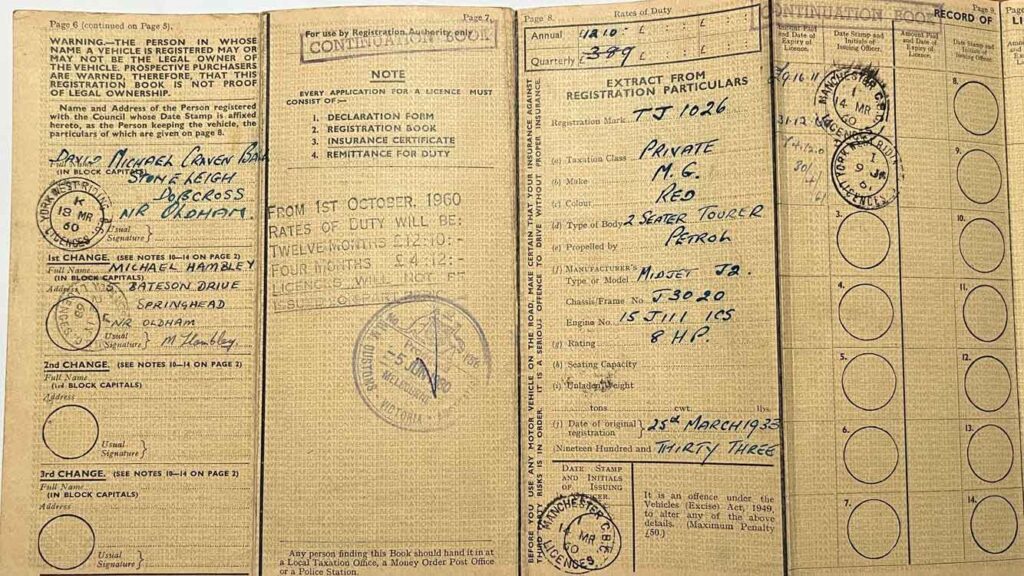 Page 6 (continued on Page 5).
WARNING.—THE PERSON IN WHOSE
NAME A VEHICLE IS REGISTERED MAY OR
MAY NOT BE THE LEGAL OWNER OF
THE VEHICLE. PROSPECTIVE PURCHASERS
ARE WARNED, THEREFORE, THAT THIS
REGISTRATION BOOK IS NOT PROOF
OF LEGAL OWNERSHIP.
Name and Address of the Person registered
with the Council whose Date Stamp is affixed
hereto, as the Person keeping the vehicle, the
particulars of which are given on page 8.
DAVID MICHAEL CRAVEN
Full Name
(IN BLOCK CAPITALS)
STONELEIGH
DOBCROSS
NR OLDHAM.
YORK WEST RIDING
K
18 MR
60
LICENCES
Usual
Signature
1st CHANGE. (SEE NOTES 10—14 ON PAGE 2)
Full Name MICHAEL HAMBLEY
(IN BLOCK CAPITALS)
Address 5 BATESON DRIVE
SPRINGHEAD
NR OLDHAM
Usual
Signature M Hambley.
2nd CHANGE. (SEE NOTES 10—14 ON PAGE 2)
Full Name
(IN BLOCK CAPITALS)
Address
Usual
Signature
3rd CHANGE. (SEE NOTES 10—14 ON PAGE 2)
Full Name
(IN BLOCK CAPITALS)
Address
Usual
Signature
Page 7.
For use by Registration Authority only
CONTINUATION BOOK
NOTE
EVERY APPLICATION FOR A LICENCE MUST
CONSIST OF:—
1. DECLARATION FORM
2. REGISTRATION BOOK
3. INSURANCE CERTIFICATE
4. REMITTANCE FOR DUTY
FROM 1ST OCTOBER, 1960
RATES OF DUTY WILL BE:
TWELVE MONTHS £12:10:-
FOUR MONTHS £4:12:-
LICENCES WILL NOT BE
5 JUN
MELBOURNE
VICTORIA
Any person finding this Book should hand it in at
a Local Taxation Office, a Money Order Post Office
or a Police Station.
BEFORE YOU USE ANY MOTOR VEHICLE ON THE ROAD, MAKE CERTAIN THAT YOUR INSURANCE AGAINST
THIRD PARTY RISKS IS IN ORDER. IT IS A SERIOUS OFFENCE TO DRIVE WITHOUT PROPER INSURANCE.
Page 8. Rates of Duty
Annual £ 12 10 : £ : £ :
Quarterly £ 3 8 9 £ : £ :
EXTRACT FROM
REGISTRATION PARTICULARS
Registration Mark TJ 1026
(a) Taxation Class PRIVATE
(b) Make M.G.
(c) Colour RED
(d) Type of Body 2 SEATER TOURER
(e) Propelled by PETROL
(f) MANUFACTURER'S
Type or Model MIDJET J2.
Chassis/Frame No J3020
Engine No. 15J111 ICS
(g) Rating 8 HP.
(h) Seating Capacity
(i) Unladen Weight
tons cwt. lbs.
(j) Date of original
registration 25th MARCH 1933
Nineteen Hundred and THIRTY THREE
DATE STAMP
AND INITIALS
OF ISSUING
MANCHESTER C.B.C.
1
14 MR
60
LICENCES
It is an offence under the
Vehicles (Excise) Act, 1949,
to alter any of the above
details. (Maximum Penalty
£50.)
CONTINUATION BOOK
Page 9.
RECORD OF
Amount Paid
and Date of
Expiry of
Licence.
Date Stamp and
Initials of
Issuing Officer.
Amount Paid
and Date of
Expiry of
Licence.
Date Stamp and
Initials of
Issuing Officer.
MANCHESTER C.B.C.
1
14 MR
LICENCES
31.12
YORK W. RIDING
1
9 JA
61
LICENCES
3.
4.
5.
6.
7.
8.
9.
10.
11.
12.
13.
14.
Page